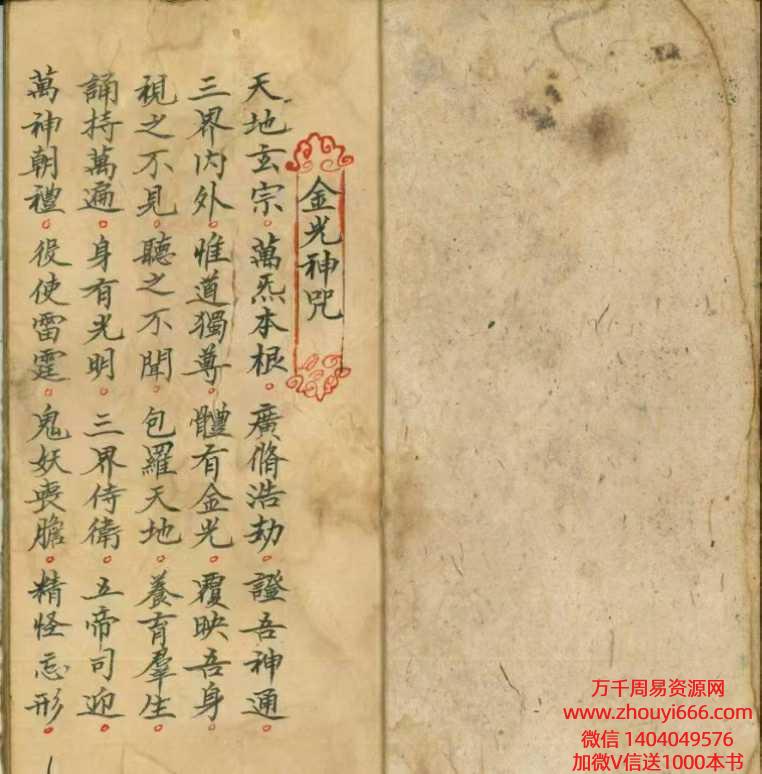 金光神咒
天地玄宗。萬炁本根。廣脩浩劫。證吾神通。
三界内外。惟道獨尊。體有金光。覆映吾身。
視之不見。聽之不聞。包羅天地。養育羣生。
誦持萬遍。身有光明。三界侍衛。五帝司迎。
萬神朝禮。役使雷霆。鬼妖喪膽。精怪忘形。
万千周易资源网
www.zhouyi666.com
微信 1404049576
加微V信送1000本书